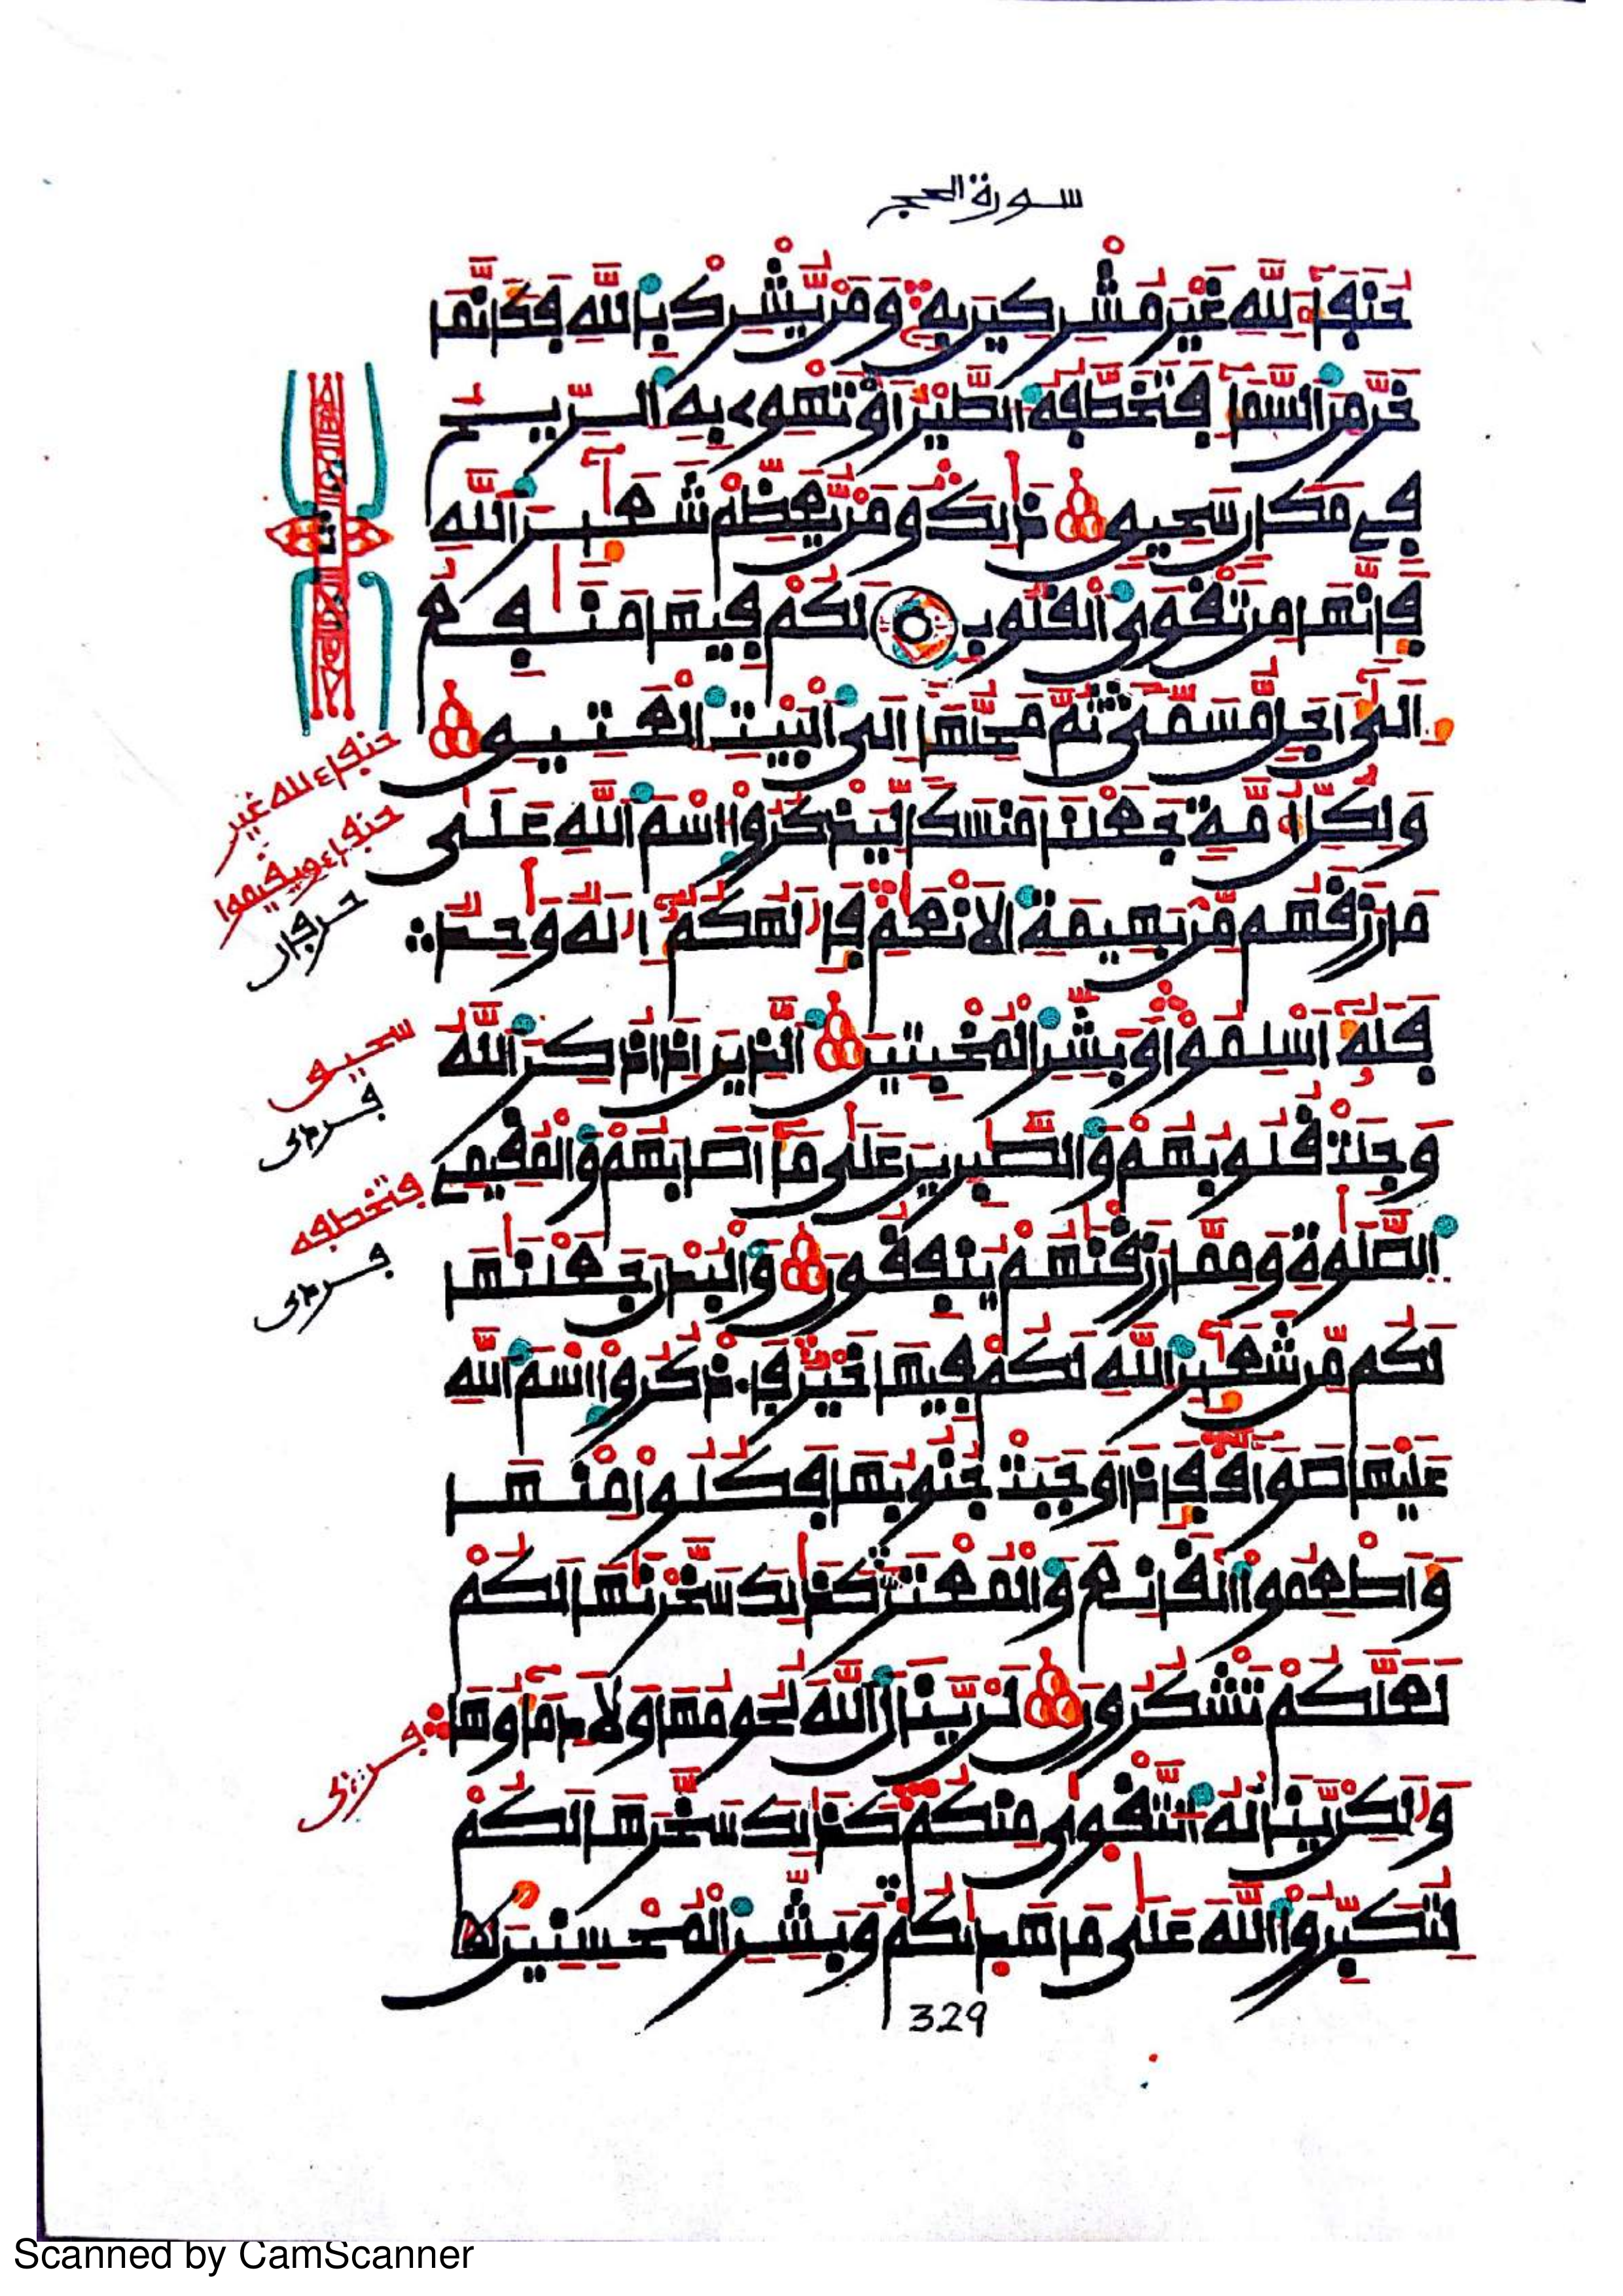 سورة الحج
حُنَفَآءَ لِلَّهِ غَيْرَ مُشْرِكِينَ بِهِۦ وَمَن يُّشْرِكْ بِاللَّهِ فَكَأَنَّمَا
خَرَّ مِنَ السَّمَآءِ فَتَخَطَّفُهُ الطَّيْرُ أَوْ تَهْوِے بِهِ الرِّيحُ
فِے مَكَانٍ سَحِيقٍ ذَٰلِكَ وَمَن يُّعَظِّمْ شَعَٰٓئِرَ اللَّهِ
فَإِنَّهَا مِن تَقْوَى الْقُلُوبِ لَكُمْ فِيهَا مَنَٰفِعُ
إِلَىٰٓ أَجَلٍ مُّسَمًّى ثُمَّ مَحِلُّهَآ إِلَى الْبَيْتِ الْعَتِيقِ
وَلِكُلِّ أُمَّةٍ جَعَلْنَا مَنسَكًا لِّيَذْكُرُوا۟ اسْمَ اللَّهِ عَلَىٰ
مَا رَزَقَهُم مِّنۢ بَهِيمَةِ الْأَنْعَٰمِ فَإِلَٰهُكُمْ إِلَٰهٌ وَٰحِدٌ
فَلَهُۥٓ أَسْلِمُوا۟ وَبَشِّرِ الْمُخْبِتِينَ الَّذِينَ إِذَا ذُكِرَ اللَّهُ
وَجِلَتْ قُلُوبُهُمْ وَالصَّٰبِرِينَ عَلَىٰ مَآ أَصَابَهُمْ وَالْمُقِيمِے
الصَّلَوٰةِ وَمِمَّا رَزَقْنَٰهُمْ يُنفِقُونَ وَالْبُدْنَ جَعَلْنَٰهَا
لَكُم مِّن شَعَٰٓئِرِ اللَّهِ لَكُمْ فِيهَا خَيْرٌ فَاذْكُرُوا۟ اسْمَ اللَّهِ
عَلَيْهَا صَوَآفَّ فَإِذَا وَجَبَتْ جُنُوبُهَا فَكُلُوا۟ مِنْهَا
وَأَطْعِمُوا۟ الْقَانِعَ وَالْمُعْتَرَّ كَذَٰلِكَ سَخَّرْنَٰهَا لَكُمْ
لَعَلَّكُمْ تَشْكُرُونَ لَن يَّنَالَ اللَّهَ لُحُومُهَا وَلَا دِمَآؤُهَا
وَلَٰكِن يَّنَالُهُ التَّقْوَىٰ مِنكُمْ كَذَٰلِكَ سَخَّرَهَا لَكُمْ
لِتُكَبِّرُوا۟ اللَّهَ عَلَىٰ مَا هَدَىٰكُمْ وَبَشِّرِ الْمُحْسِنِينَ
حنفاء لله غير
حنفاء ويقيموا
حرفان
سحيق
فردى
فتخطفه
فردى
329
Scanned by CamScanner